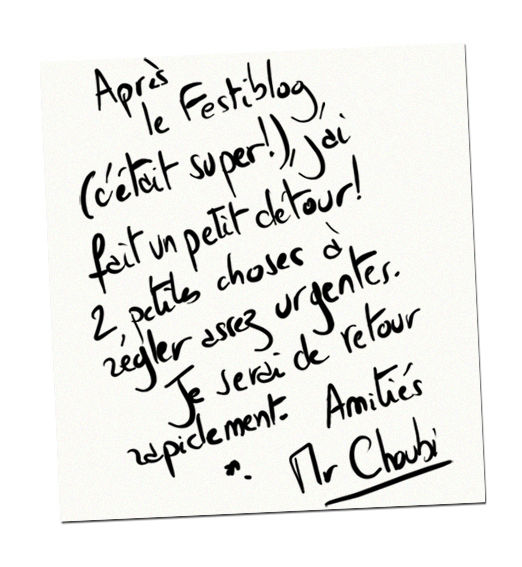 Après
le Festiblog,
(c'était super!), j'ai
fait un petit détour!
2 petites choses à
régler assez urgentes.
Je serai de retour
rapidement. Amitiés
Mr Choubi